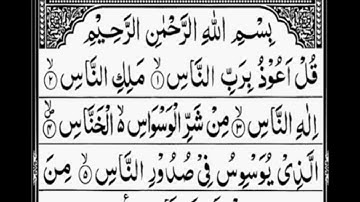 بِسْمِ اللهِ الرَّحْمٰنِ الرَّحِيْمِ
قُلْ اَعُوْذُ بِرَبِّ النَّاسِ ۙ﴿۱﴾ مَلِكِ النَّاسِ ۙ﴿۲﴾
اِلٰهِ النَّاسِ ۙ﴿۳﴾ مِنْ شَرِّ الْوَسْوَاسِ ۙ۬ الْخَنَّاسِ ۪ۙ﴿۴﴾
الَّذِيْ يُوَسْوِسُ فِيْ صُدُوْرِ النَّاسِ ۙ﴿۵﴾ مِنَ